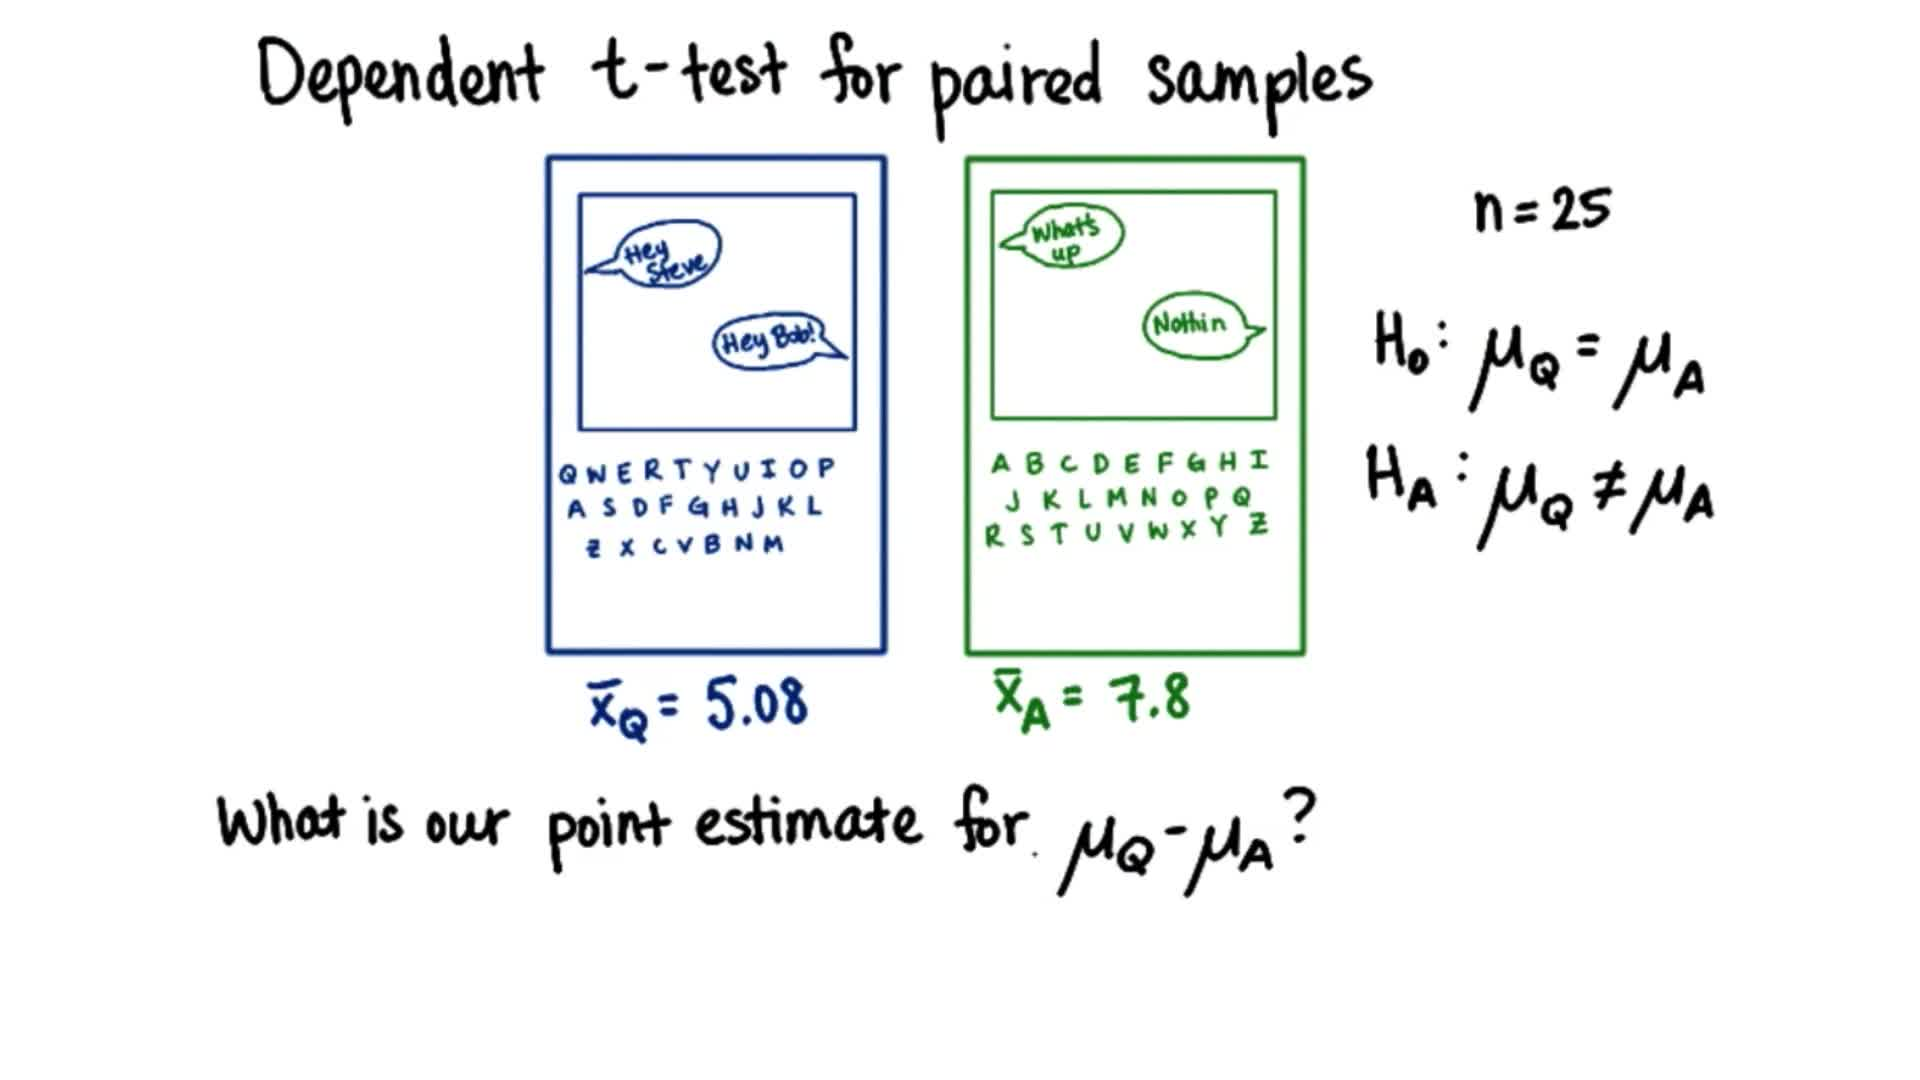 Dependent t-test for paired samples
Hey
Steve
Hey Bob!
Q W E R T Y U I O P
A S D F G H J K L
Z X C V B N M
x̄Q = 5.08
What's
up
Nothin
A B C D E F G H I
J K L M N O P Q
R S T U V W X Y Z
x̄A = 7.8
n = 25
H₀: μQ = μA
HA: μQ ≠ μA
What is our point estimate for μQ - μA?